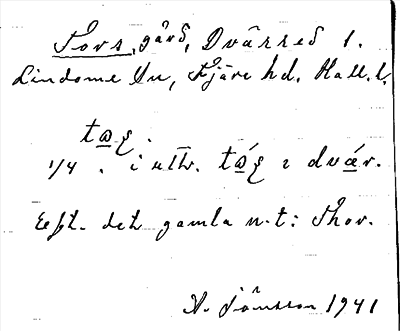 Tors, gård, Dvärred 1.
Lindome sn, Fjäre hd. Hall. l.
1/4 . i uttr. dvár.
Eft. det gamla n. t: Thor.
A. Jönsson 1941